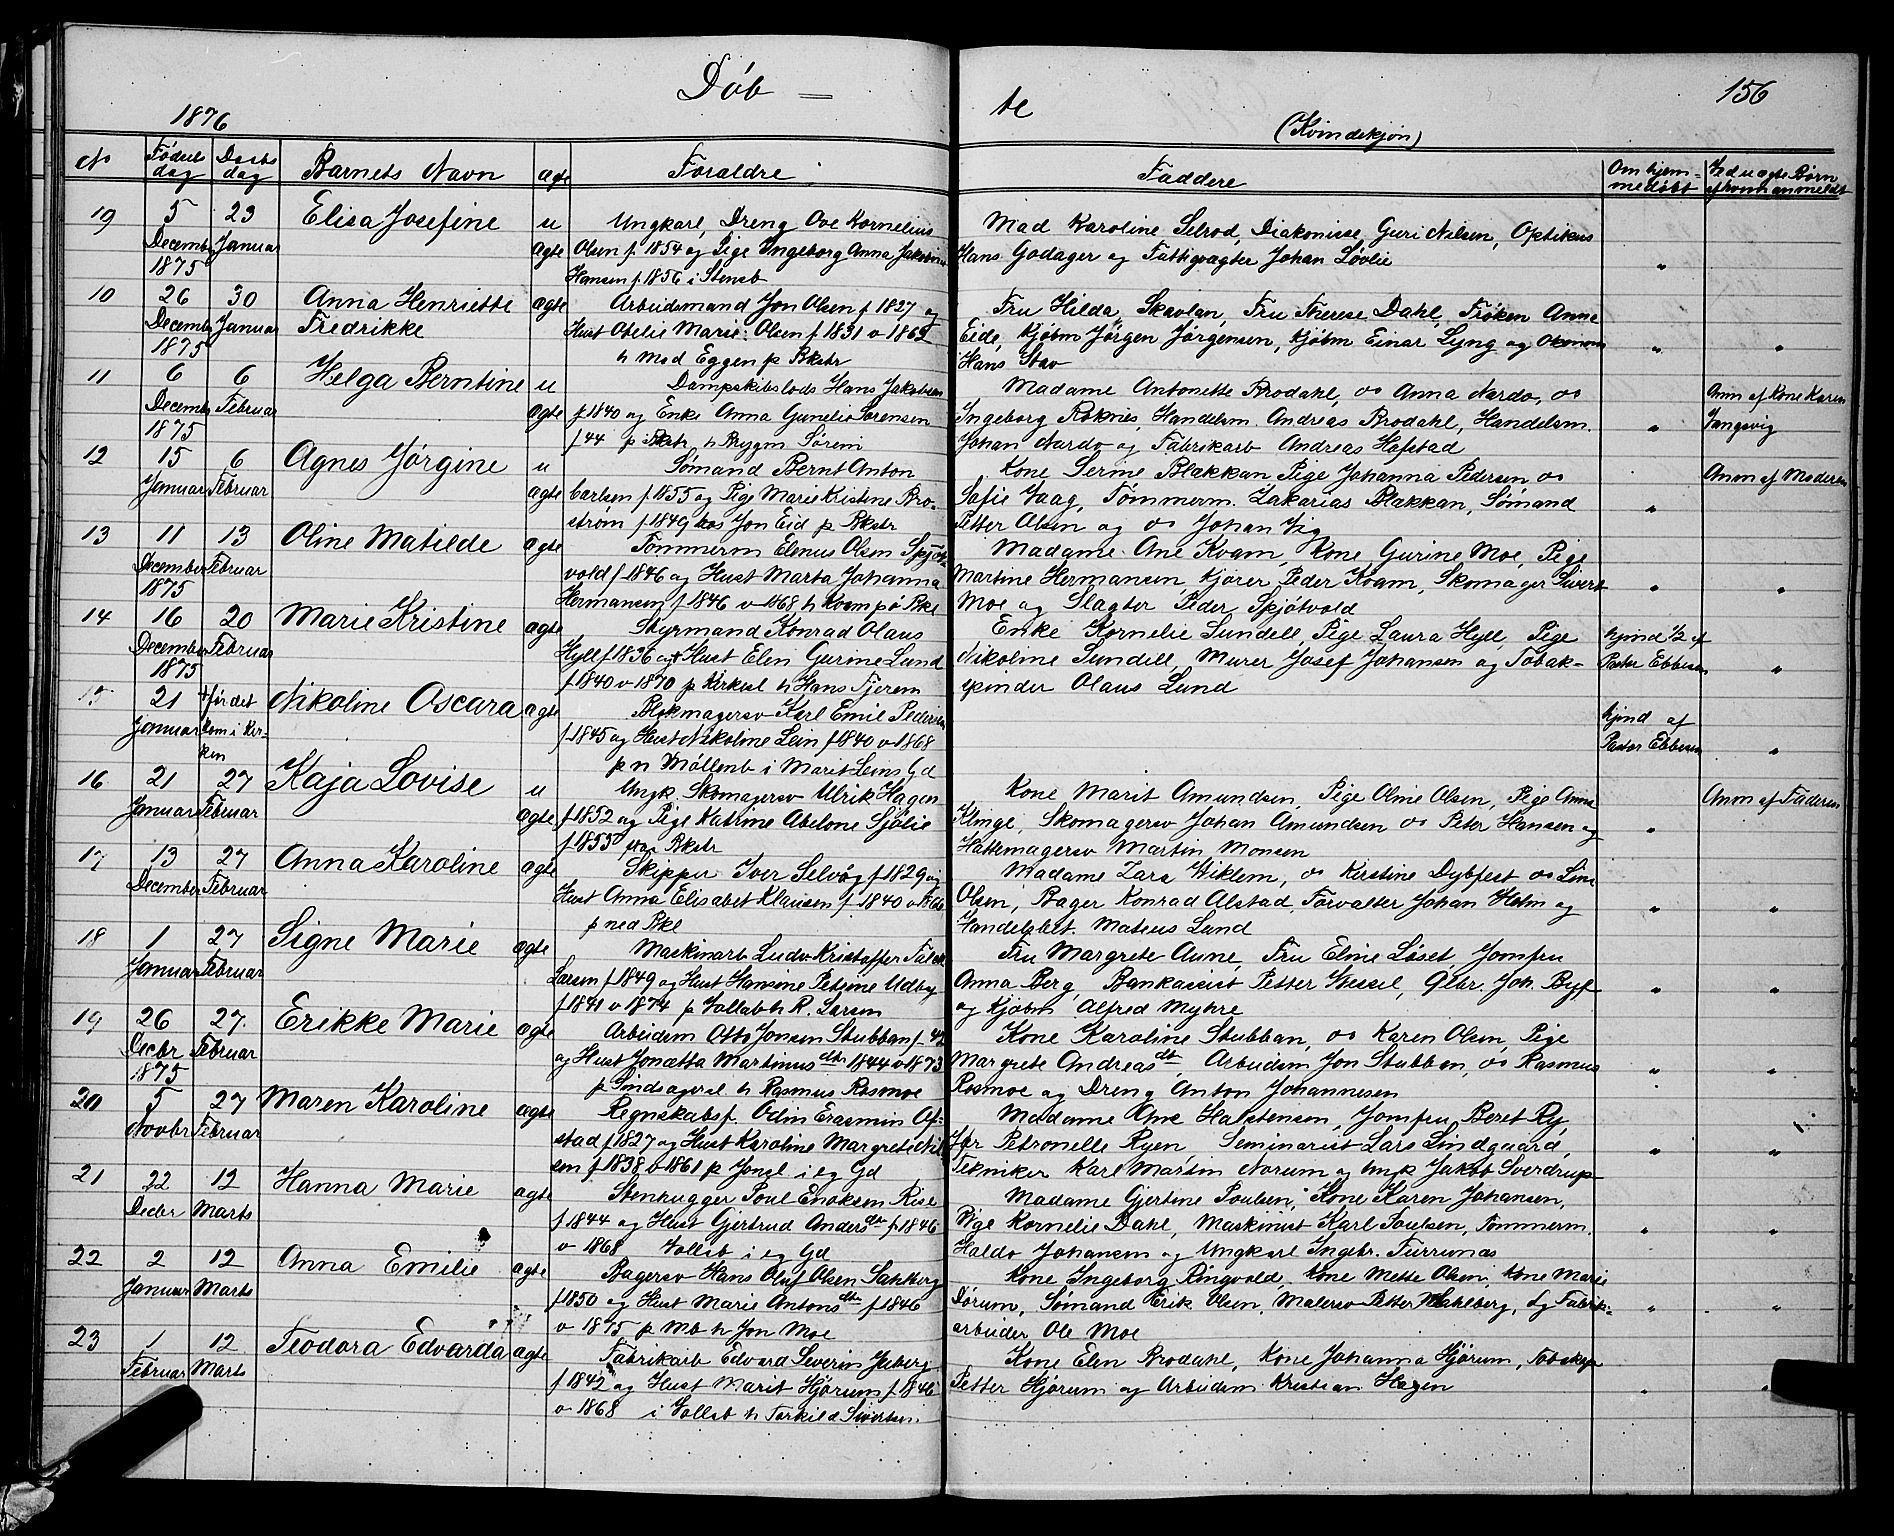 Döb — te
156
1876
(Kvindekjøn)
No Fødsels dag Daabs dag Barnets Navn ægte Forældre Faddere Om hjemmedøbt Ved uægte Børn af hvem anmeldt
19 5 December 1875 23 Januar Elisa Josefine u ægte
Ungkarl, Dreng Ove Kornelius
Olsen f. 1854 og Pige Ingeborg Anna Jakobine
Hansen f. 1856 i Stensb
Mad Karoline Selrod, Diakonisse Guri Nilsen, Optikus
Hans Godager og Fattigvægter Johan Løvlie
"
10 26 December 1875 30 Januar Anna Henriette Fredrikke ægte
Arbeidsmand Jon Olsen f 1827 og
Hust Ovelie Marie Olsen f 1831 v 1862
h Mad Eggen p Bkstr
Fru Hilda Skavlan, Fru Therese Dahl, Frøken Anna
Eide, Kjøbm Jørgen Jørgensen, Kjøbm Einar Lyng og
Hans Stav
" "
11 6 December 1875 6 Februar Helga Berntine u ægte
Dampskibslods Hans Jakobsen
f 1840 og Enke Anna Gunelie Sørensen
f 44 p Bkstr h Brygm Søreni
Madame Antonette Brodahl, do Anna Nardo, do
Ingeborg Røknes, Handelsm. Andreas Brodahl, Handelsm.
Johan Nardo og Fabrikarb Andreas Hafstad
" Anm af Kone Karen
Vangsvig
12 15 Januar 6 Februar Agnes Jørgine u ægte
Sømand Bernt Anton
Carlsen f 1855 og Pige Marie Kristine Bro-
strøm f 1849 hos Jon Eid p Bkstr
Kone Serine Blakkan Pige Johanna Pedersen do
Sofie Vaag, Tømmerm. Zakarias Blakkan, Sømand
Petter Olsen og do Johan Vig
" Anm af Moderen
13 11 December 1875 13 Februar Oline Matilde ægte
Tømmerm Elenus Olsen Spjøt-
vold f 1846 og Hust Marta Johanna
Hermansen f 1846 v 1868 h Kvam p ø Bkl
Madame Ane Kvam, Kone Gurine Moe, Pige
Martine Hermansen, Kjører Peder Kvam, Skomager Sivert
Moe og Slagter Peder Spjøtvold
" "
14 16 December 1875 20 Februar Marie Kristine ægte
Styrmand Konrad Olaus
Hyll f 1836 og Hust Elen Gurine Lund
f 1840 v 1870 p Kirkesl h Hans Fjerem
Enke Kornelie Sundell, Pige Laura Hyll, Pige
Nikoline Sundell, Murer Josef Johansen og Tobak-
spinder Olaus Lund
hjmd 1/2 af
Pastor Ebbesen "
15 21 Januar † før det kom i Kirken Nikoline Oscara ægte
Blokmagersv Karl Emil Pedersen
f 1845 og Hust Nikoline Lein f 1840 v 1868
p n Möllenb i Marit Leins Gd
hjmd af
Pastor Ebbesen "
16 21 Januar 27 Februar Kaja Lovise u ægte
Ungk Skomagersv Ulrik Hagen
f 1852 og Pige Katrine Abelone Sjølie
f 1853 Bkstr
Kone Marit Amundsen, Pige Oline Olsen, Pige Anna
Klinge, Skomagersv Johan Amundsen do Peter Hansen og
Hattemagersv Martin Monsen
" Anm af Faderen
17 13 December 27 Februar Anna Karoline ægte
Skipper Iver Selvåg f 1829 og
Hust Anna Elisabet Klausen f 1840 v
p ned Bkl
Madame Zara Wiklem, do Kirstine Dybfest do Lina
Olsen, Bager Konrad Alstad, Forvalter Johan Holm og
Handelsbet. Mateus Lund
" "
18 1 Januar 27 Februar Signe Marie ægte
Maskinarb Ludv Kristoffer Falck
Larsen f 1849 og Hust Hansine Petrine Udbye
f 1841 v 1874 p Vollab h R. Larsen
Fru Margrete Aune, Fru Eline Løset, Jomfru
Anna Berg, Bankassist Petter Kessel, Glbr. Joh. Byf
og Kjøbm Alfred Myhre
" "
19 26 Decbr 1875 27 Februar Erikke Marie ægte
Arbeidsm Otto Jonsen Stubban f. 42
og Hust Jonetta Martinus dtr 1844 v 1873
p Sindsagersl h Rasmus Rosmoe
Kone Karoline Stubban, do Karen Olsen, Pige
Margrete Andreas dt, Arbeidsm Jon Stubban, do Rasmus
Rosmoe og Dreng Anton Johannesen
" "
20 5 Novbr 27 Februar Maren Karoline ægte
Regnskabsf. Odin Erasmin Of-
stad f 1827 og Hust Karoline Margrete Nil-
sen f 1838 v 1861 p Vongl i eg Gd
Madame Ane Halstensen, Jomfru Beret Ry,
Jfr Petronelle Ryen, Seminarist Lars Lindgaard,
Tekniker Karl Martin Norum og Ungk Jakob Sverdrup
" "
21 22 Decbr 12 Marts Hanna Marie ægte
Stenhugger Poul Enoksen Rise
f 1844 og Hust Gjertrud Anders dtr f 1846
v 1868 Vollab i eg Gd
Madame Gjertine Poulsen, Kone Karen Johansen,
Pige Kornelie Dahl, Maskinist Karl Poulsen, Tømmerm.
Haldo Johansen og Ungkarl Ingebr. Furrunas
" "
22 2 Januar 12 Marts Anna Emilie ægte
Bagersv Hans Oluf Olsen Sahlberg
f 1850 og Hust Marie Antons dtr f 1846
v 1875 p Mb h Jon Moe
Kone Ingeborg Ringvold, Kone Mette Olsen, Kone Marie
Dørum, Sømand Erik Olsen, Malersv Petter Wahlberg, og Fabrik-
arbeider Ole Moe
" "
23 1 Februar 12 Marts Teodora Edvarda ægte
Fabrikarb Edvard Severin Yuberg
f 1842 og Hust Marit Hjørum f 1846
v 1868 i Vollab h Torkild Sivertsen
Kone Elen Brodahl, Kone Johanna Hjørum, Tobaksp
Petter Hjørum og Arbeidsm Kristian Hagen
" "